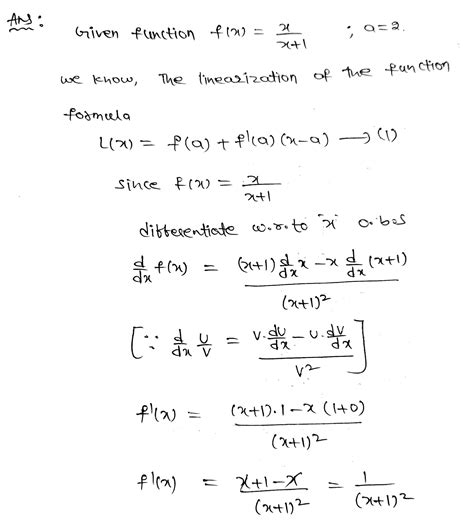 Ans:
Given function f(x) = x/(x+1) ; a=2.
we know, The linearization of the function
formula
L(x) = f(a) + f'(a) (x-a) ⟶ (1)
since f(x) = x/(x+1)
differentiate w.r.to "x" o.b.s
d/dx f(x) = ((x+1) d/dx x - x d/dx (x+1))/(x+1)²
[∵ d/dx u/v = (v. du/dx - u. dv/dx)/v²]
f'(x) = ((x+1).1 - x (1+0))/(x+1)²
f'(x) = (x+1-x)/(x+1)² = 1/(x+1)²